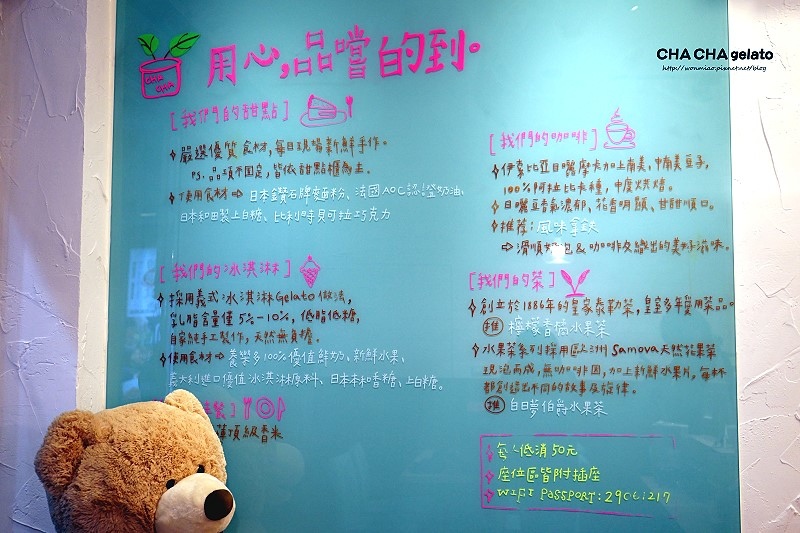 CHA CHA gelato
http://wonmiao.pixnet.net/blog
CHA
CHA
用心,品嚐的到。
[我們的甜點]
嚴選優質食材,每日現場新鮮手作。
PS.品項不固定,皆依甜點櫃為主。
使用食材⇨日本鑽石牌麵粉、法國AOC認證奶油、
日本和田製上白糖、比利時貝可拉巧克力
[我們的冰淇淋]
採用義式冰淇淋Gelato做法,
乳脂含量僅5%-10%,低脂低糖,
自家純手工製作,天然無負擔。
使用食材⇨養樂多100%優值鮮奶、新鮮水果、
義大利進口優值冰淇淋原料、日本本和香糖、上白糖。
頂級香米
[我們的咖啡]
伊索比亞日曬摩卡加上南美,中南美豆子,
100%阿拉比卡種,中度烘焙。
日曬豆香氣濃郁、花香明顯、甘甜順口。
推薦:風味拿鐵
⇨滑順奶泡&咖啡交織出的美好滋味。
[我們的茶]
創立於1886年的皇家泰勒茶,皇室多年愛用茶品。
推 檸檬香橘水果茶
水果茶系列採用歐洲Samova天然花果茶
現泡而成,無咖啡因,加上新鮮水果片,每杯
都創造出不同的故事及旋律。
推 白日夢伯爵水果茶
每人低消50元
座位區皆附插座
WIFI PASSPORT:29061217